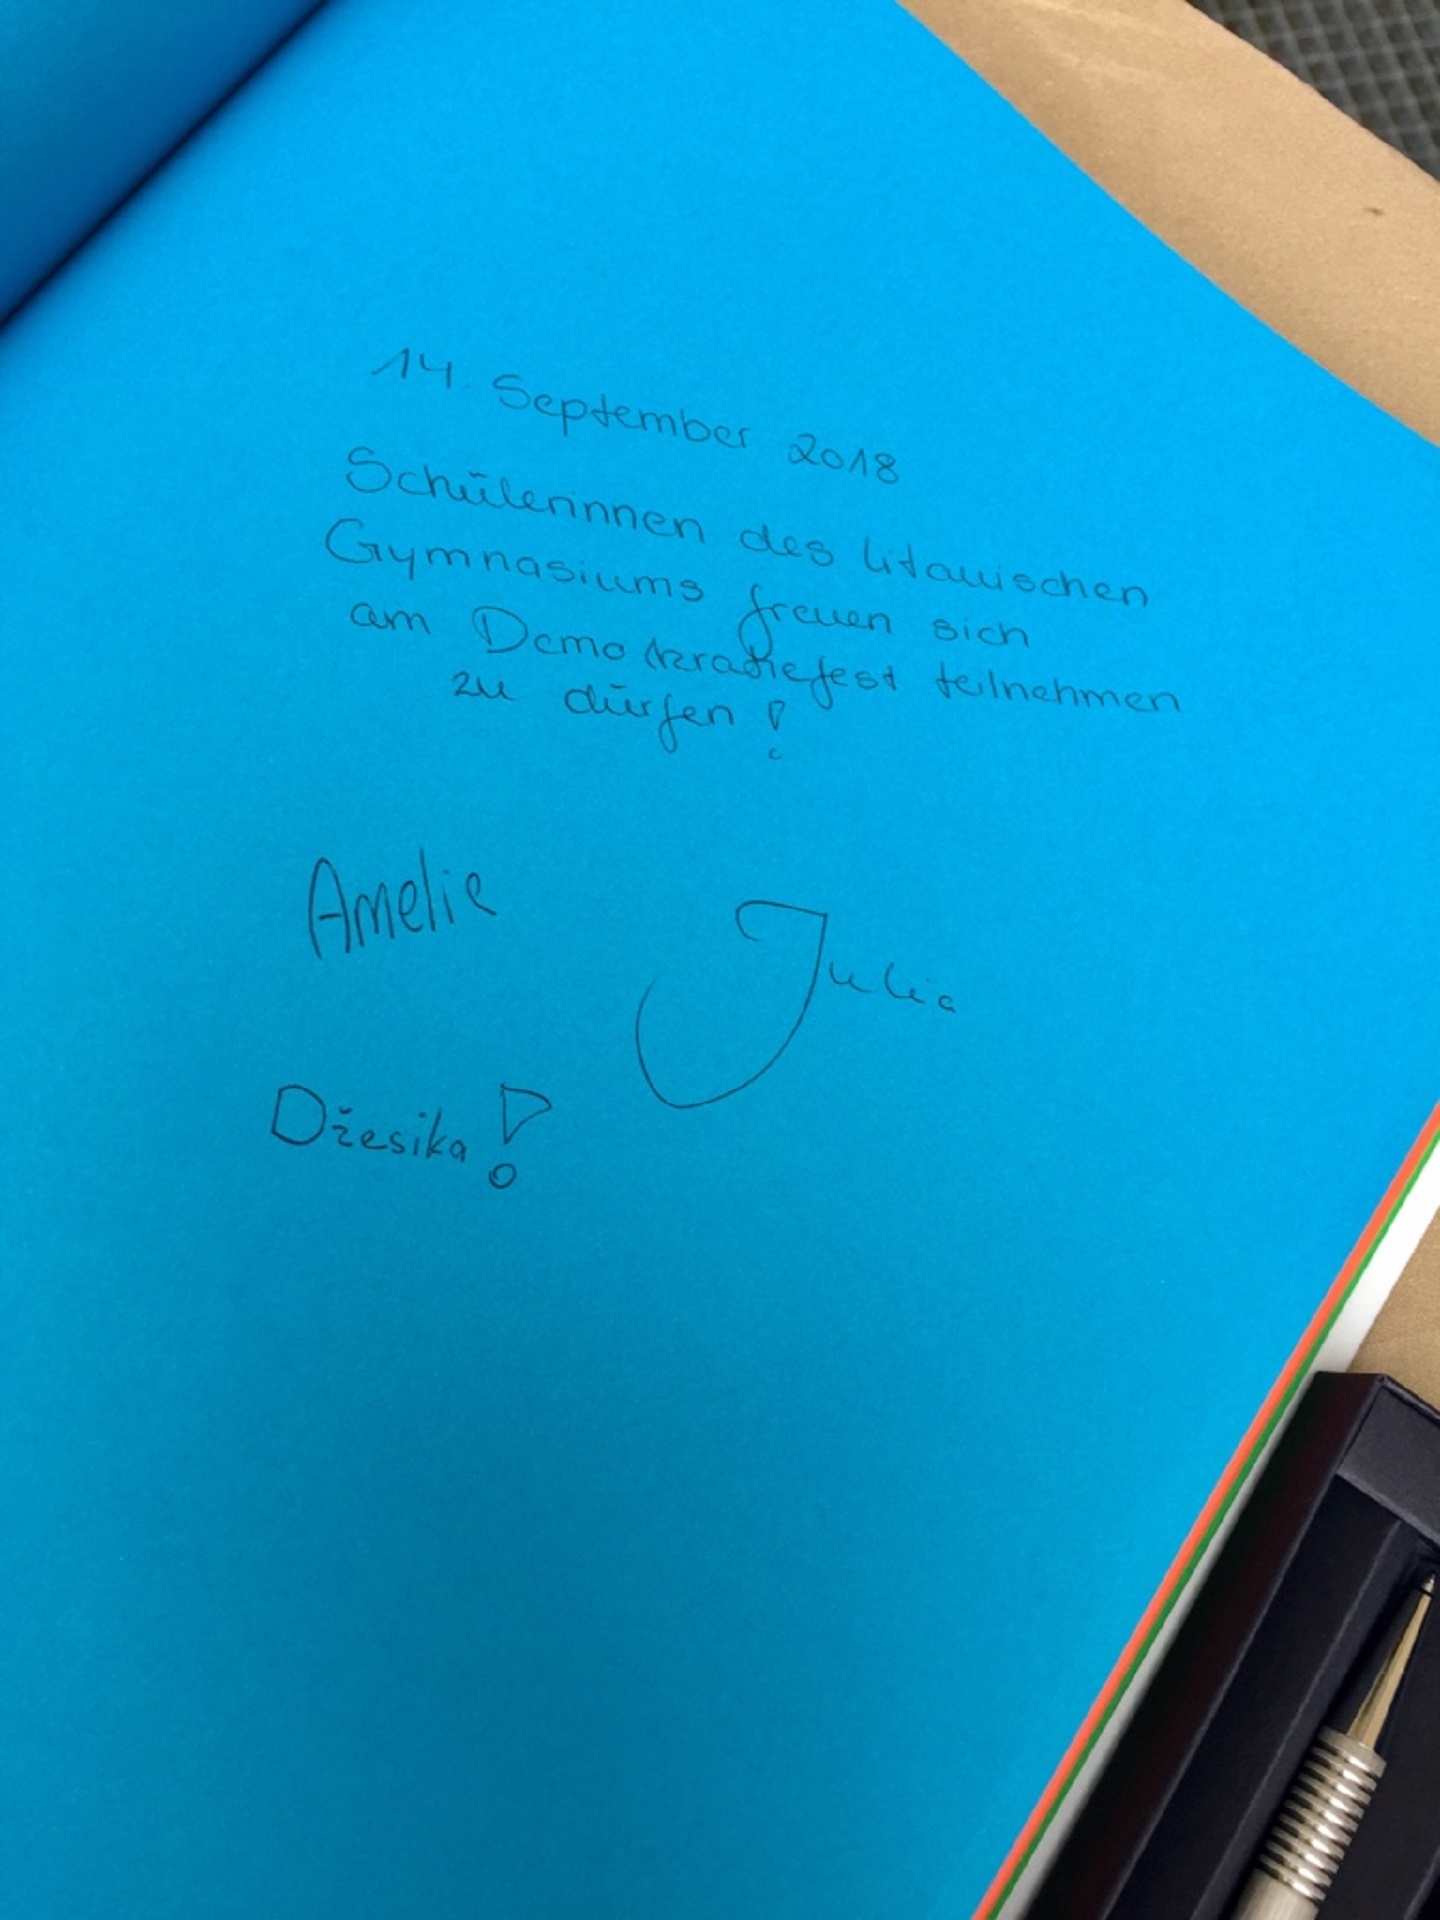 14. September 2018
Schülerinnen des litauischen
Gymnasiums freuen sich
am Demokratiefest teilnehmen
zu dürfen!
Amelie
Julia
Džesika!